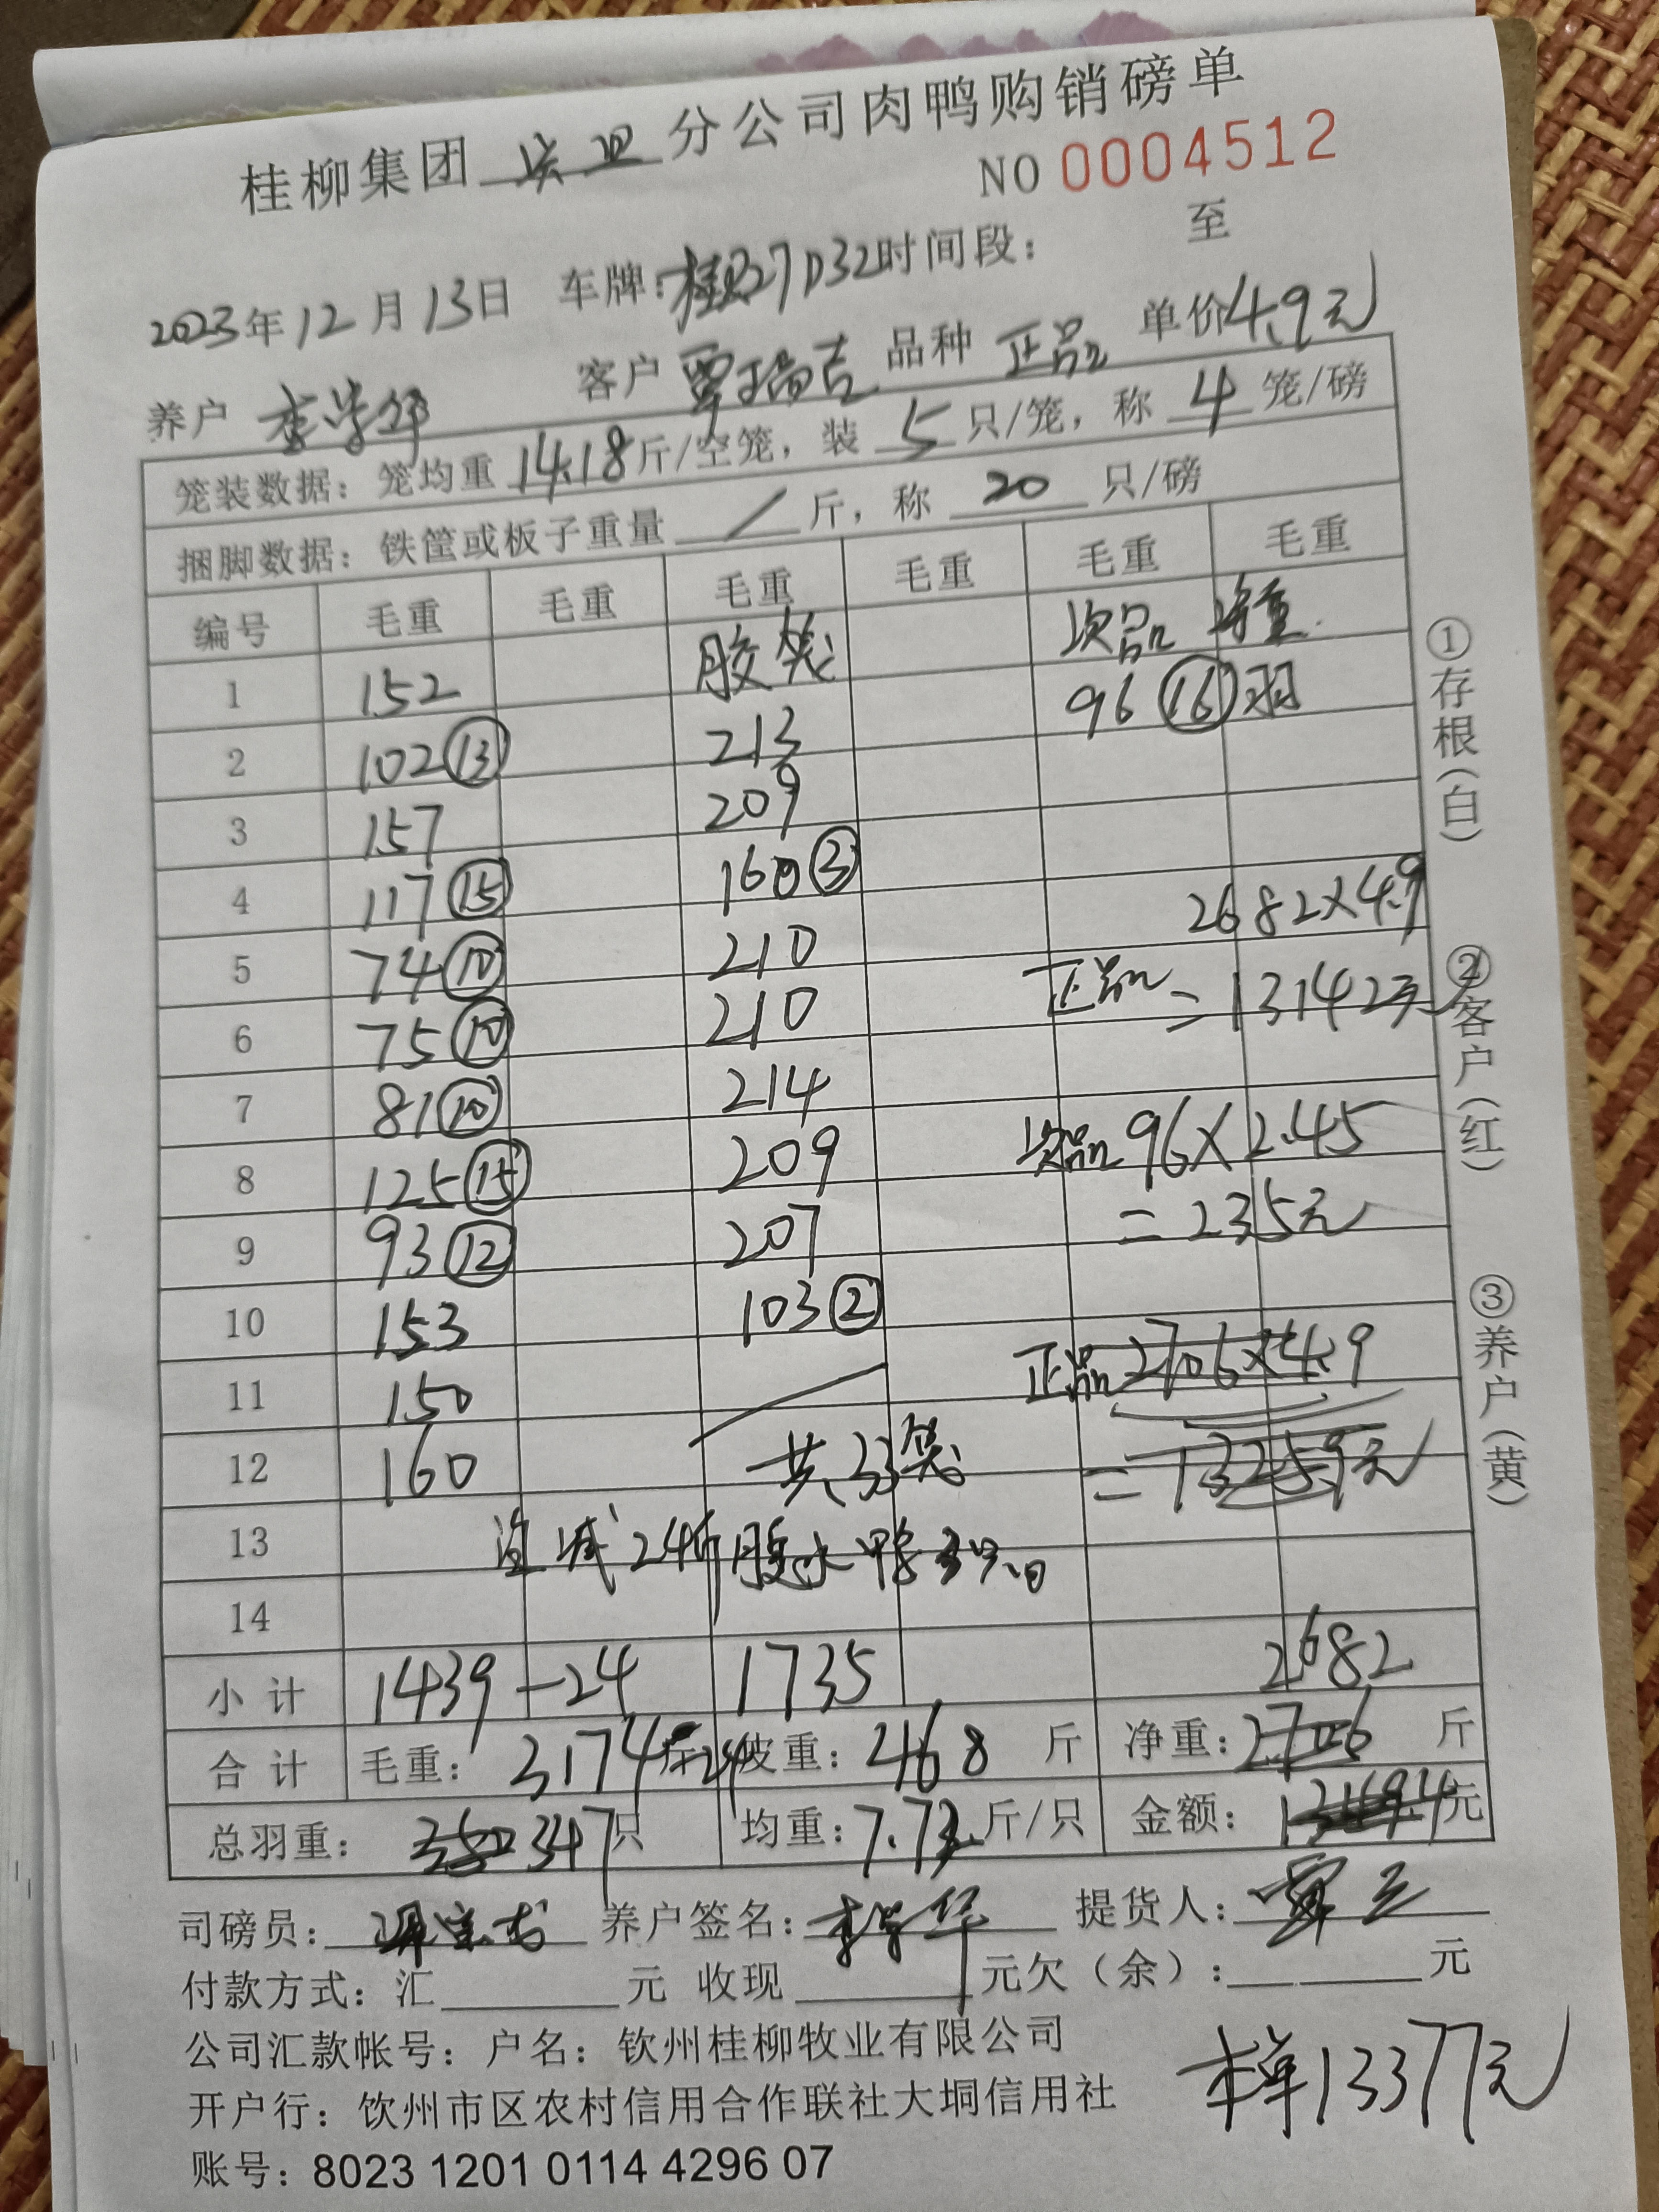 桂柳集团 分公司肉鸭购销磅单
NO 0004512
2023年12月13日 车牌: 27D32 时间段: 至
养户 李学华 客户 覃瑞吉 品种 正品 单价4.9元
笼装数据: 笼均重 14.18 斤/空笼, 装 5 只/笼, 称 4 笼/磅
捆脚数据: 铁筐或板子重量 / 斤, 称 20 只/磅
编号 毛重 毛重 毛重 毛重 毛重 毛重
1 152 胶笼 次品 净重
2 102⑬ 213 96⑯羽
3 157 209
4 117⑮ 160③
5 74⑩ 210 2682×4.9
6 75⑩ 210 正品=13142元
7 81⑩ 214
8 125⑮ 209 次品96×2.45
9 93⑫ 207 =235元
10 153 103②
11 150 正品2706×4.9
12 160 共33笼 =13259元
13 减24斤胶水鸭
14
小计 1439 -24 1735 2682
合计 毛重: 3174斤-24 皮重: 468 斤 净重: 2706 斤
总羽重: 347只 均重: 7.73斤/只 金额: 元
司磅员: 养户签名: 李学华 提货人: 覃
付款方式: 汇 元 收现 元欠(余): 元
公司汇款帐号: 户名: 钦州桂柳牧业有限公司
开户行: 钦州市区农村信用合作联社大垌信用社
本单13377元
账号: 8023 1201 0114 4296 07
①存根(白)
②客户(红)
③养户(黄)